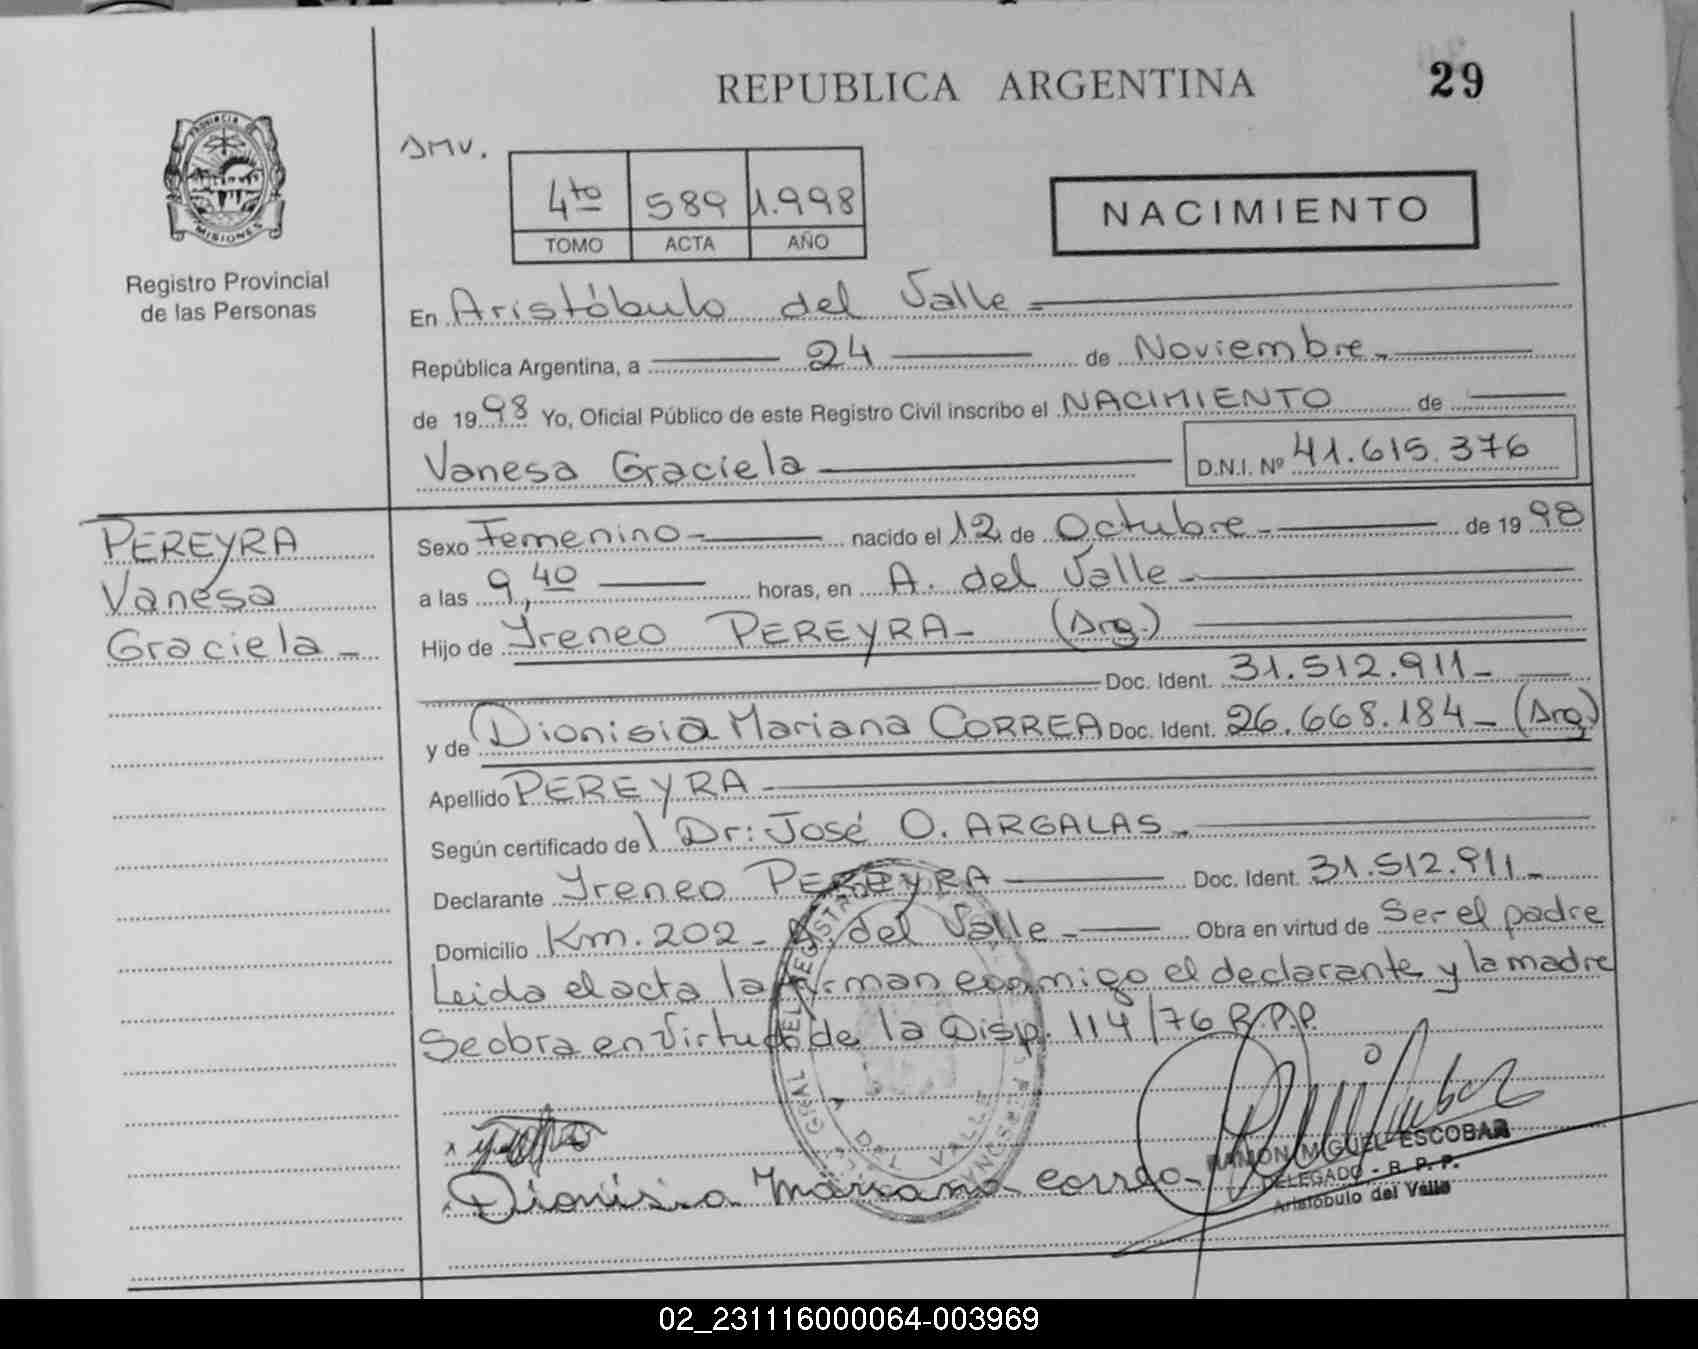 REPUBLICA ARGENTINA
29
PROVINCIA DE
MISIONES
Registro Provincial
de las Personas
SMV.
4to 589 1.998
TOMO ACTA AÑO
NACIMIENTO
En Aristóbulo del Valle
República Argentina, a 24 de Noviembre
de 1998 Yo, Oficial Público de este Registro Civil inscribo el NACIMIENTO de
Vanesa Graciela D.N.I. Nº 41.615.376
PEREYRA
Vanesa
Graciela
Sexo Femenino nacido el 12 de Octubre de 1998
a las 9,40 horas, en A. del Valle
Hijo de Yreneo PEREYRA (Arg.)
Doc. Ident. 31.512.911
y de Dionisia Mariana CORREA Doc. Ident. 26.668.184 (Arg)
Apellido PEREYRA
Según certificado de Dr: José O. ARGALAS
Declarante Yreneo PEREYRA Doc. Ident. 31.512.911
Domicilio Km. 202 - A. del Valle Obra en virtud de Ser el padre
Leida el acta la firman conmigo el declarante y la madre
Se obra en Virtud de la Disp. 114/76 R.P.P.
Dionisia Mariana Correa
RAMON MIGUEL ESCOBAR
DELEGADO - R. P. P.
Aristobulo del Valle
02_231116000064-003969